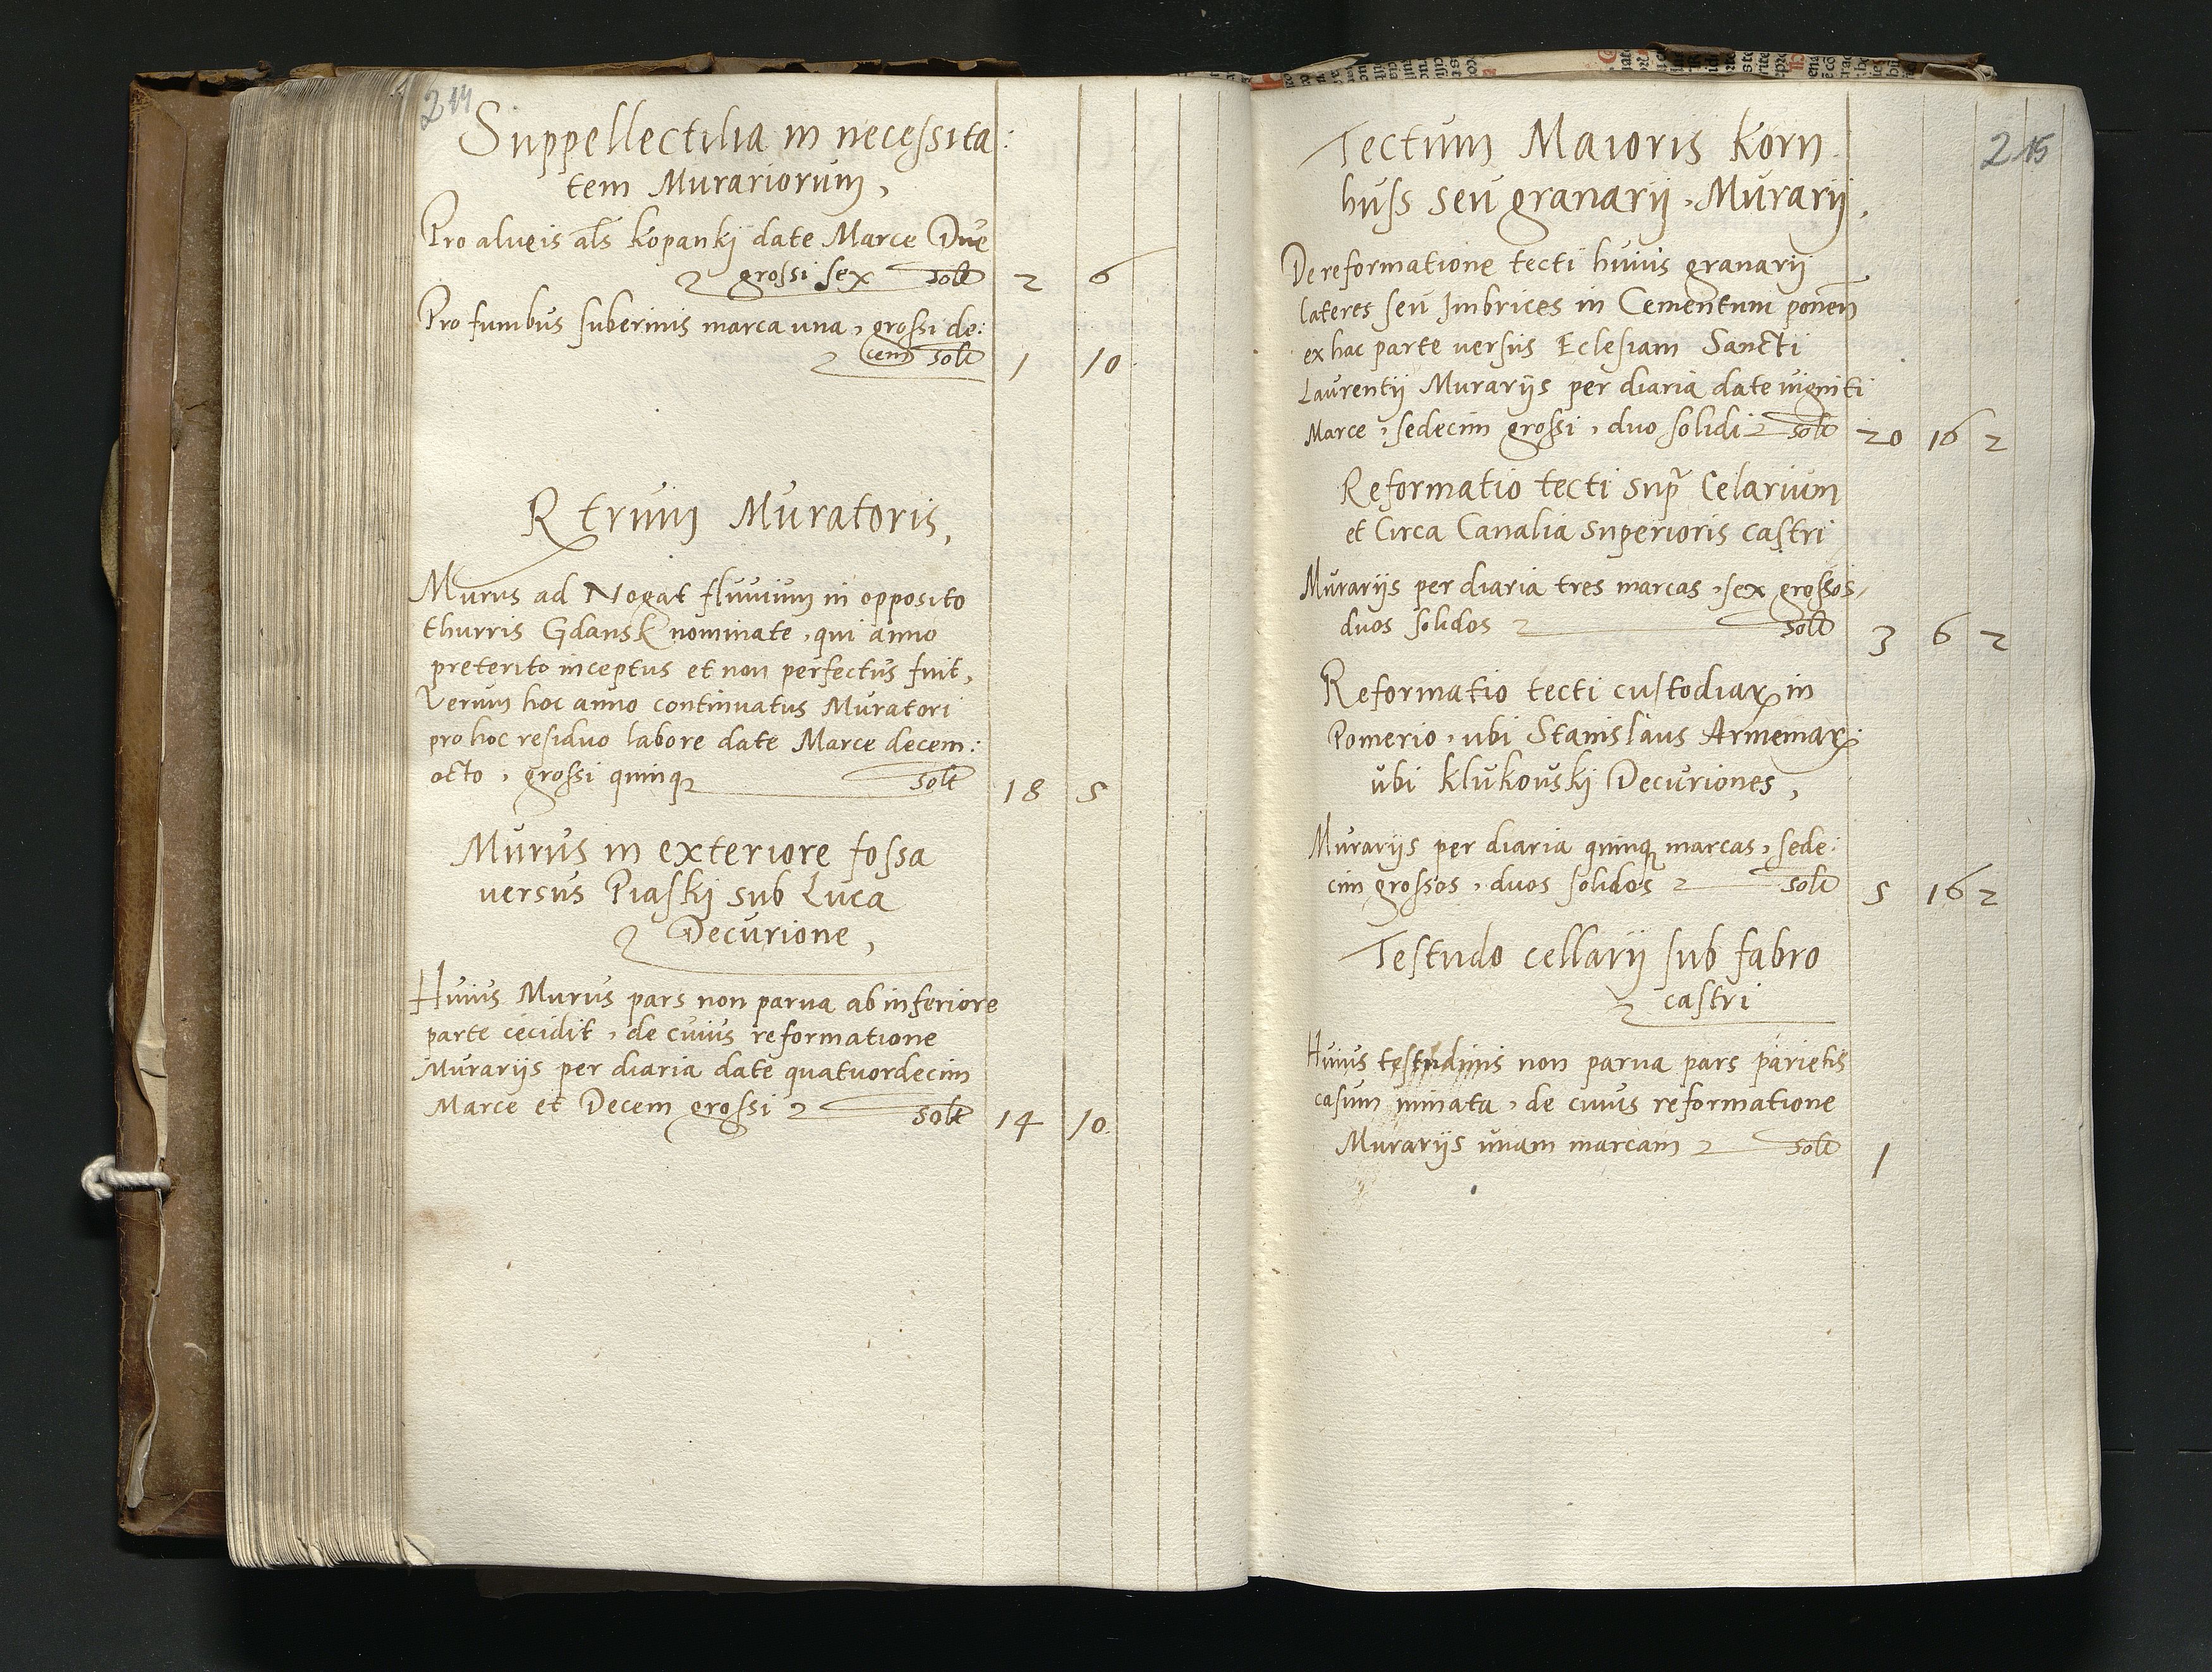 214
Suppellectilia in necessita:
tem Murariorum,
Pro alveis als Kopankj date Marce Due
grossi sex solt 2 6
Pro funibus suberinis marca una, grossi de:
cem solt 1 10
Murus ad Nogat fluvium in opposito
thurris Gdansk nominate, qui anno
preterito inceptus et non perfectus fuit,
Verum hoc anno continuatus Muratori
pro hoc residuo labore date Marce decem:
octo, grossi quinq solt 18 5
Murus in exteriore fossa
versus Piaskj sub Luca
Decurione,
Huius Murus pars non parva ab inferiore
parte cecidit, de cuius reformatione
Murarijs per diaria date quatuordecim
Marce et Decem grossi solt 14 10
215
Tectum Maioris Korn
huss seu granarij, Murarij,
De reformatione tecti huius granarij
lateres seu Imbrices in Cementum ponen
ex hac parte versus Eclesiam Sancti
Laurentij Murarijs per diaria date viginti
Marce, sedecim grossi, duo solidi solt 20 16 2
Reformatio tecti supra Celarium
et Circa Canalia superioris castri
Murarijs per diaria tres marcas, sex grossos,
duos solidos solt 3 6 2
Reformatio tecti custodiar in
Pomerio, ubi Stanislaus
ubi Klukovskj Decuriones,
Murarijs per diaria quinq marcas, sede:
cim grossos, duos solidos solt 5 16 2
Testudo cellarij sub fabro
castri
Huius testudinis non parva pars parietis
casum minata, de cuius reformatione
Murarijs unam marcam solt 1